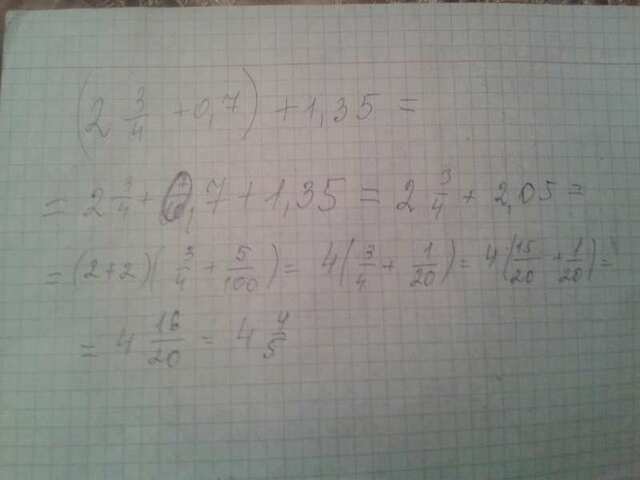 (2 3/4 + 0,7) + 1,35 =
= 2 3/4 + 0,7 + 1,35 = 2 3/4 + 2,05 =
= (2+2)(3/4 + 5/100) = 4(3/4 + 1/20) = 4(15/20 + 1/20) =
= 4 16/20 = 4 4/5